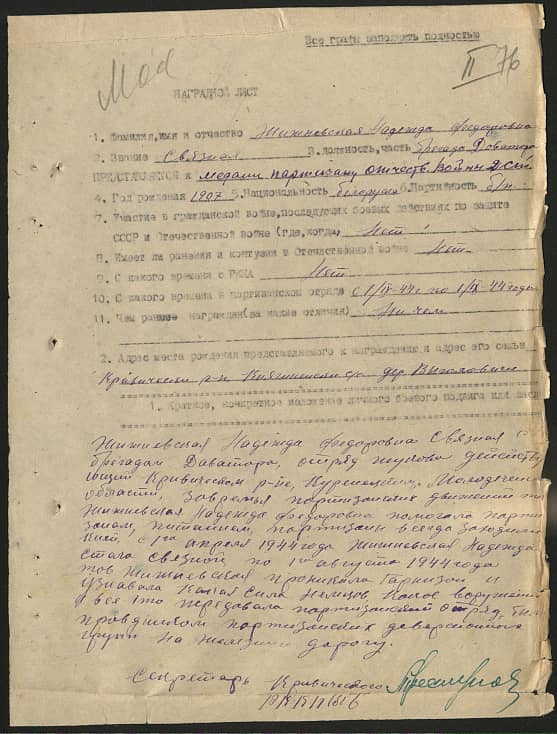 Все графы заполнять полностью
II 76
НАГРАДНОЙ ЛИСТ
1. Фамилия, имя и отчество Жижневская Надежда Федоровна
2. Звание Связная 3. должность, часть бригада Доватора
ПРЕДСТАВЛЯЕТСЯ к медали партизану отечеств. войны
4. Год рождения 1907 5. Национальность белорус 6. Партийность б/п
7. Участие в гражданской войне, последующих боевых действиях по защите
СССР и Отечественной войне (где, когда) Нет
8. Имеет ли ранения и контузии в Отечественной войне Нет.
9. С какого времени в РККА Нет
10. С какого времени в партизанском отряде с 1/IV-44г. по 1/ 44 года
11. Чем ранее награжден (за какие отличия) Ничем
2. Адрес места рождения представляемого к награждению и адрес его семьи
р-н дер.
1. Краткое, конкретное изложение личного боевого подвига или
Жижневская Надежда Федоровна Связная
бригады Даватора, отряд Жукова действ
ющий Кривичском р-не, Куренецком, Молодечен
области, Завремья партизанских движений
Жижневская Надежда Федоровна помогала парти
занам, питанием, партизаны всегда заходили
с 1го апреля 1944 года Жижневская Надежда
стала связной по 1го августа 1944 года
тов Жижневская проникала Гарнизон и
узнавала Какая сила Немцов Какое вооружение
и все это передавала партизанский отряд, был
проводником партизанских диверсионного
групп На железную дорогу.
Секретарь Кривического